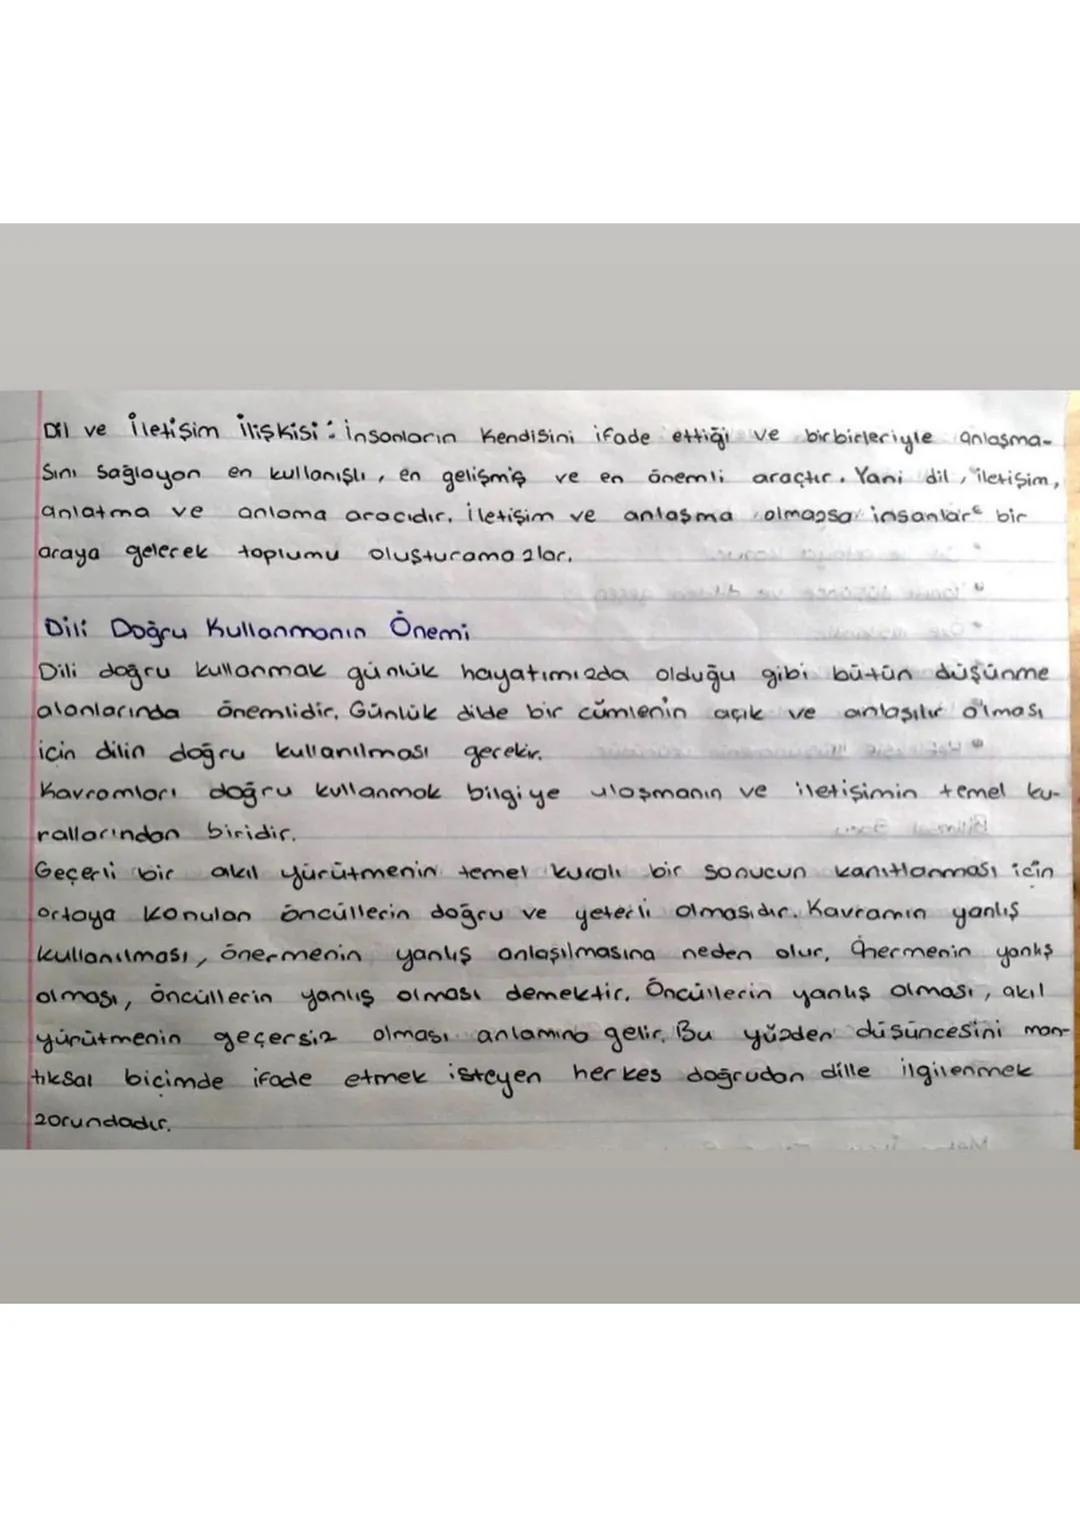 Dil ve İletişim ilişkisi: İnsanların Kendisini ifade ettiği ve birbirleriyle anlaşma-
sını sağlayan en kullanışlı, en gelişmiş ve en önemli araçtır. Yani dil, iletişim,
anlatma ve anlama aracıdır. İletişim ve anlaşma olmazsa insanlar bir
araya gelerek toplumu oluşturamazlar.
Dili Doğru Kullanmanın Önemi
Dili doğru kullanmak günlük hayatımızda olduğu gibi bütün düşünme
alanlarında önemlidir. Günlük dilde bir cümlenin açık ve anlaşılır olması
için dilin doğru kullanılması gerekir.
Kavramları doğru kullanmak bilgiye ulaşmanın ve iletişimin temel ku-
rallarından biridir.
Geçerli bir akıl yürütmenin temel kuralı bir sonucun kanıtlanması için
ortaya konulan öncüllerin doğru ve yeterli olmasıdır. Kavramın yanlış
kullanılması, önermenin yanlış anlaşılmasına neden olur. Önermenin yanlış
olması, öncüllerin yanlış olması demektir. Öncüllerin yanlış olması, akıl
yürütmenin geçersiz olması anlamına gelir. Bu yüzden düşüncesini man-
tıksal biçimde ifade etmek isteyen herkes doğrudan dille ilgilenmek
zorundadır.